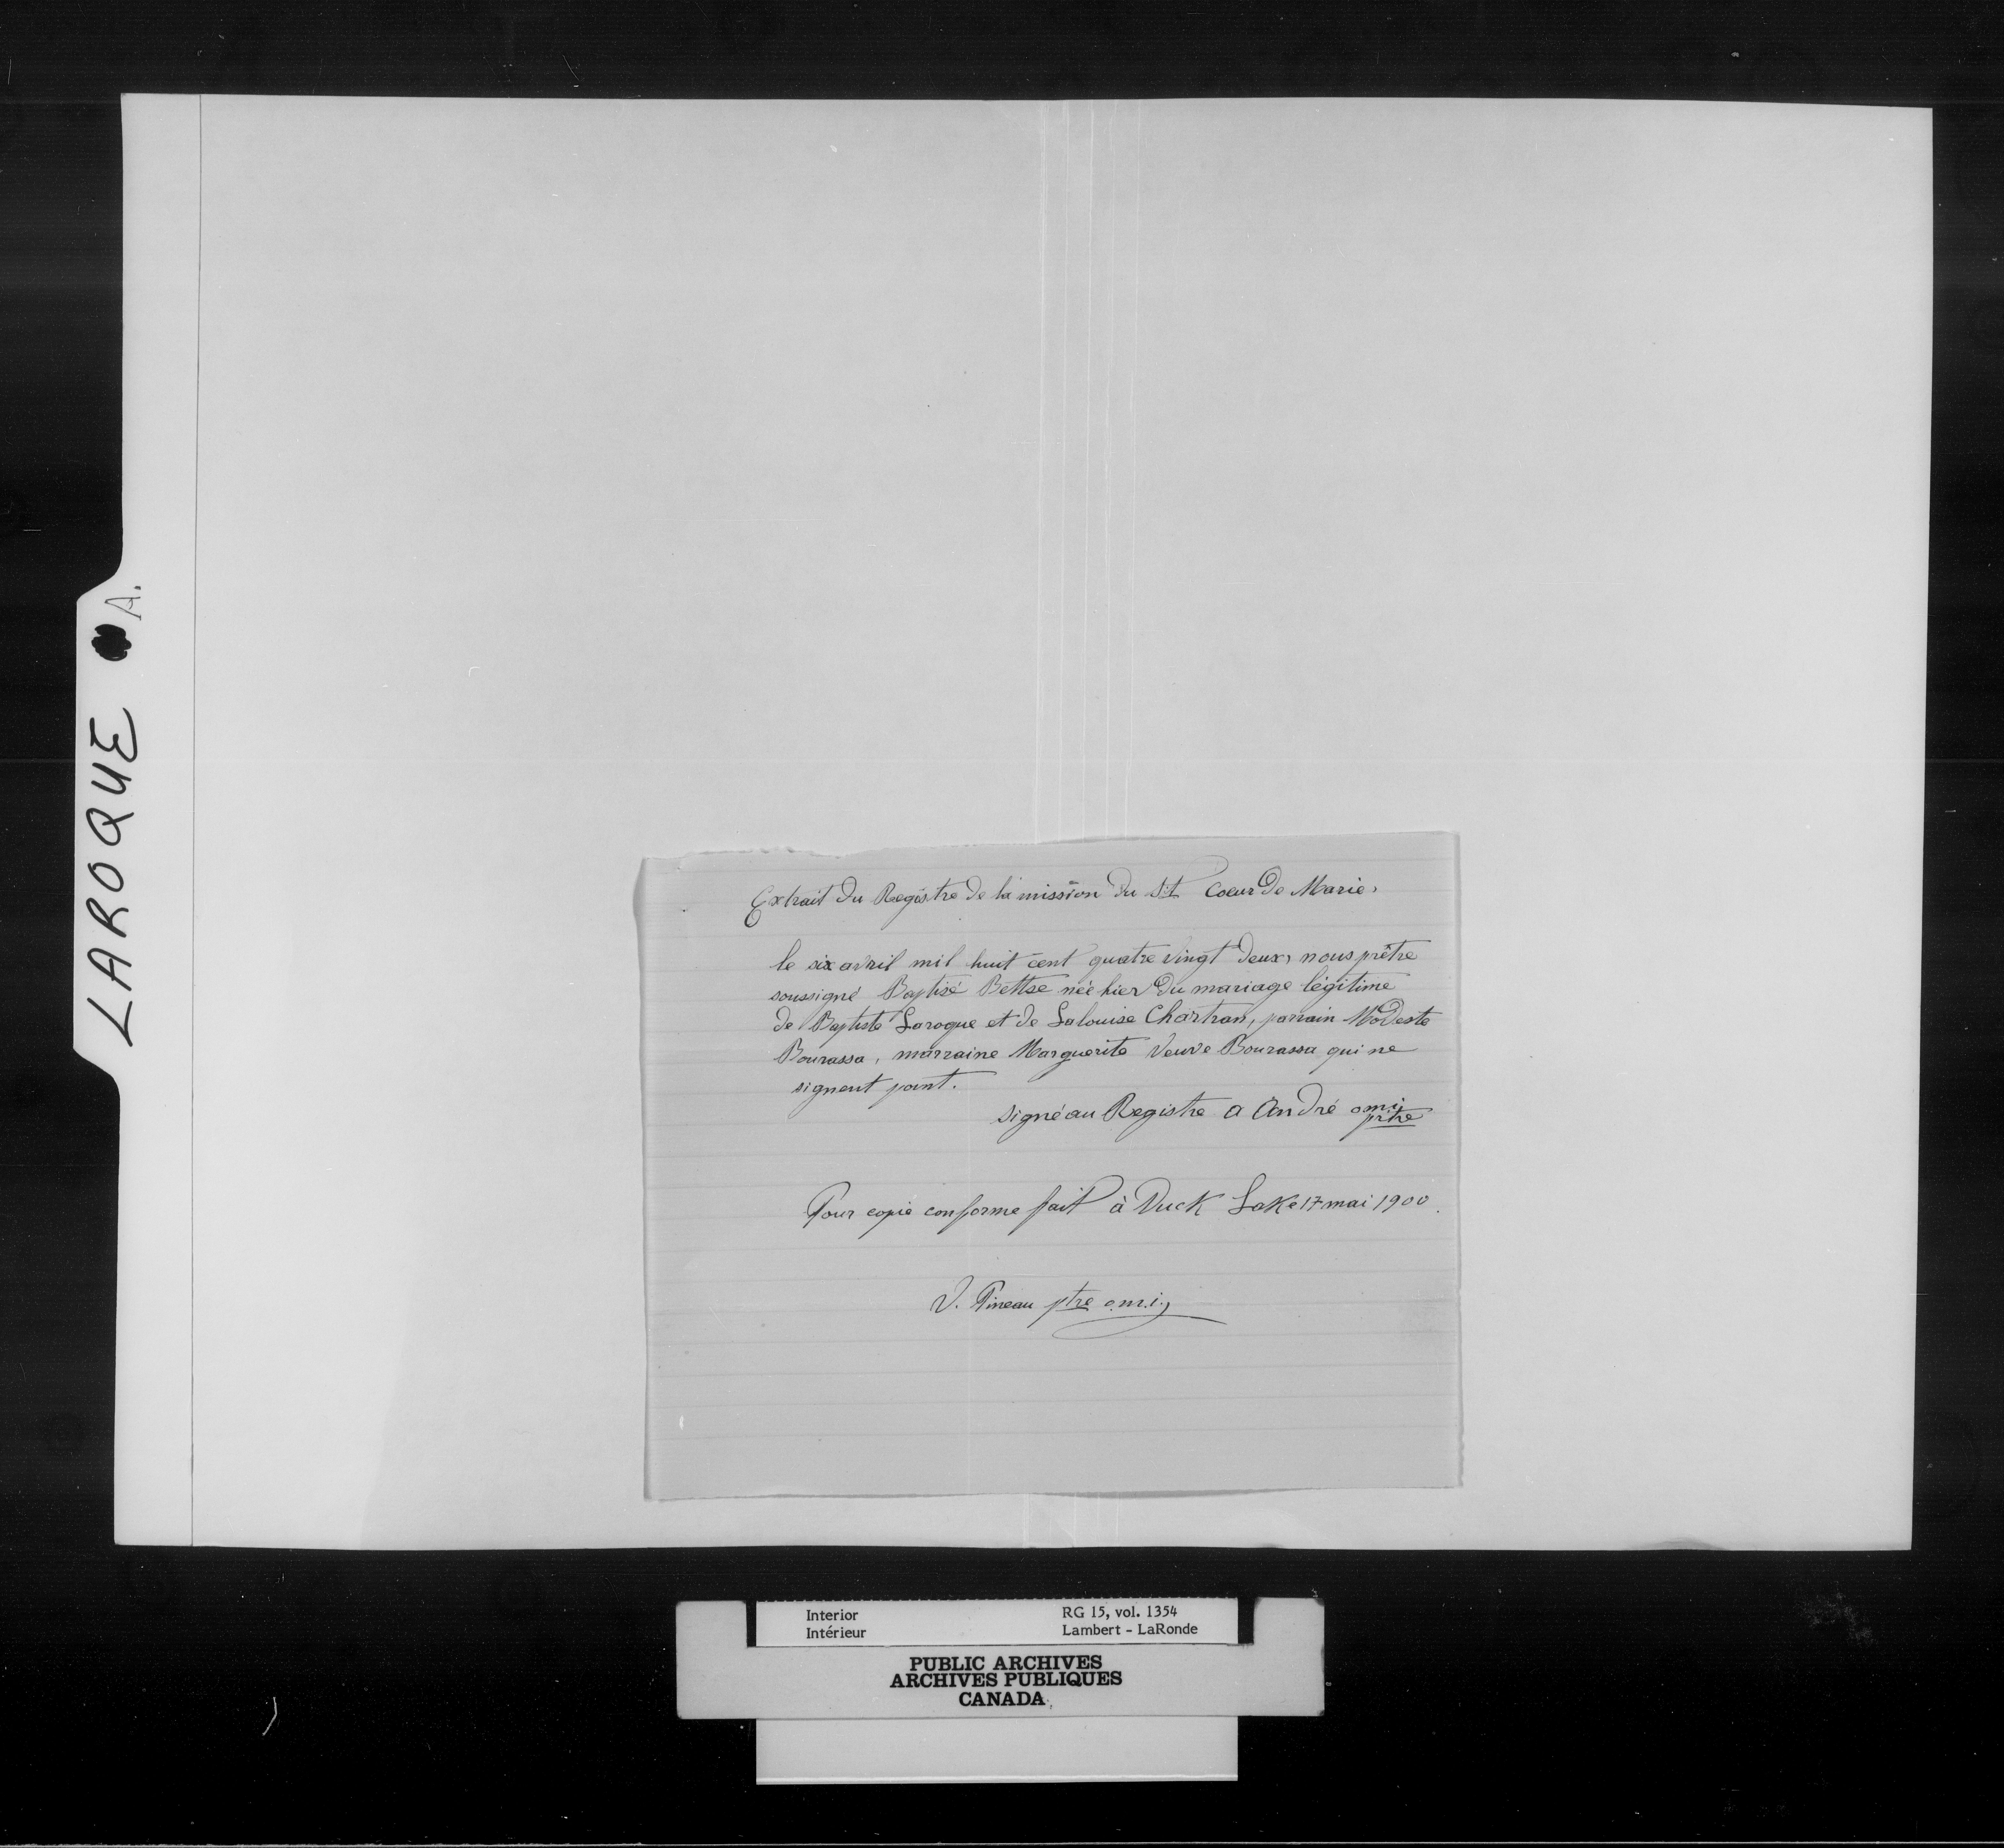 LAROQUE A.
Extrait du Registre de la mission du St Coeur de Marie.
le six avril mil huit cent quatre vingt deux, nous prêtre
soussigné Baptisé Bettse née hier du mariage légitime
de Baptiste Laroque et de Lalouise Chartran, parrain Modeste
Bourassa, marraine Marguerite Veuve Bourassa qui ne
signent point.
signé au Registre A André omi
prtre
Pour copie conforme fait à Duck Lake 17 mai 1900.
V. Pineau ptre o.m.i.
Interior RG 15, vol. 1354
Intérieur Lambert - LaRonde
PUBLIC ARCHIVES
ARCHIVES PUBLIQUES
CANADA